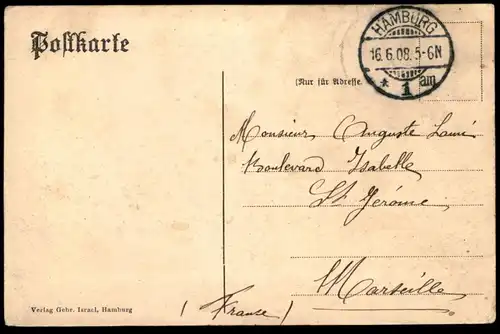 Postkarte
HAMBURG
16.6.08.5-6N
* 1 am
(Nur für Adresse.
Monsieur Auguste
Boulevard Isabelle
St Jérôme
Marseille
(France)
Verlag Gebr. Israel, Hamburg